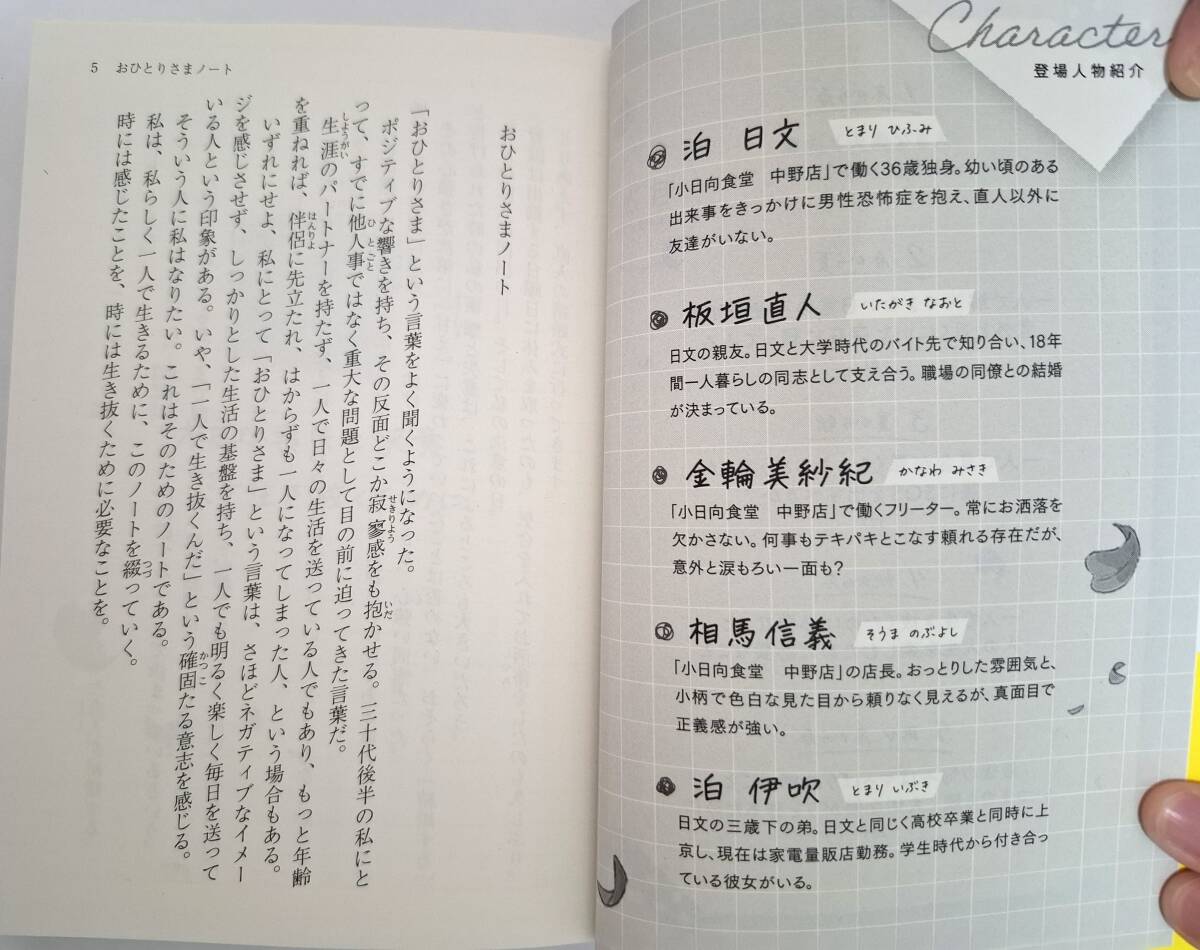 Character
登場人物紹介
泊 日文 とまり ひふみ
「小日向食堂　中野店」で働く36歳独身。幼い頃のある
出来事をきっかけに男性恐怖症を抱え、直人以外に
友達がいない。
板垣直人 いたがき なおと
日文の親友。日文と大学時代のバイト先で知り合い、18年
間一人暮らしの同志として支え合う。職場の同僚との結婚
が決まっている。
金輪美紗紀 かなわ みさき
「小日向食堂　中野店」で働くフリーター。常にお洒落を
欠かさない。何事もテキパキとこなす頼れる存在だが、
意外と涙もろい一面も？
相馬信義 そうま のぶよし
「小日向食堂　中野店」の店長。おっとりした雰囲気と、
小柄で色白な見た目から頼りなく見えるが、真面目で
正義感が強い。
泊 伊吹 とまり いぶき
日文の三歳下の弟。日文と同じく高校卒業と同時に上
京し、現在は家電量販店勤務。学生時代から付き合っ
ている彼女がいる。
5 おひとりさまノート
おひとりさまノート
「おひとりさま」という言葉をよく聞くようになった。
せきりよう いだ
ポジティブな響きを持ち、その反面どこか寂寥感をも抱かせる。三十代後半の私にと
ひとごと
って、すでに他人事ではなく重大な問題として目の前に迫ってきた言葉だ。
しようがい
生涯のパートナーを持たず、一人で日々の生活を送っている人でもあり、もっと年齢
はんりよ
を重ねれば、伴侶に先立たれ、はからずも一人になってしまった人、という場合もある。
いずれにせよ、私にとって「おひとりさま」という言葉は、さほどネガティブなイメー
ジを感じさせず、しっかりとした生活の基盤を持ち、一人でも明るく楽しく毎日を送って
かつこ
いる人という印象がある。いや、「一人で生き抜くんだ」という確固たる意志を感じる。
そういう人に私はなりたい。これはそのためのノートである。
つづ
私は、私らしく一人で生きるために、このノートを綴っていく。
時には感じたことを、時には生き抜くために必要なことを。